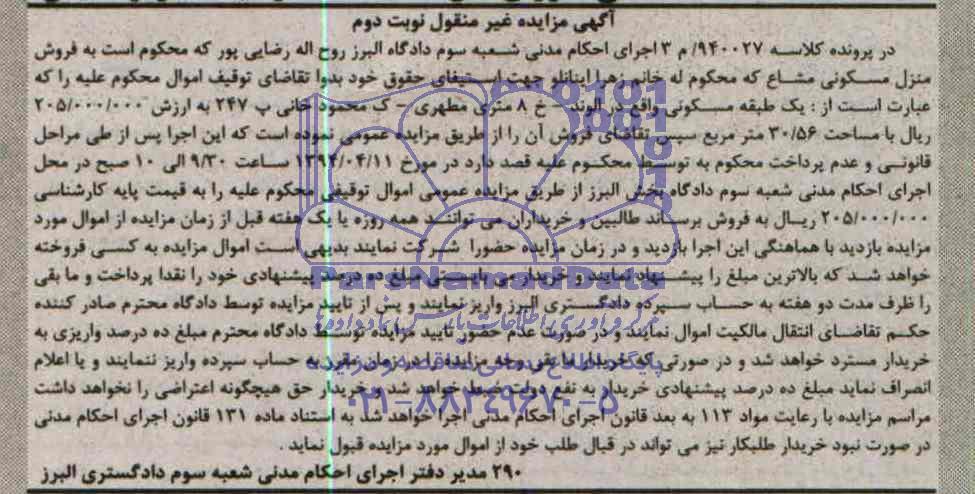 آگهی مزایده غیر منقول نوبت دوم
در پرونده کلاسه ۹۴۰۰۲۷/ م ۳ اجرای احکام مدنی شعبه سوم دادگاه البرز روح اله رضایی پور که محکوم است به فروش
منزل مسکونی مشاع که محکوم له خانم زهرا اینانلو جهت استیفای حقوق خود بدوا تقاضای توقیف اموال محکوم علیه را که
عبارت است از : یک طبقه مسکونی واقع در الوند – خ ۸ متری مطهری – ک محمود خانی پ ۲۴۷ به ارزش ۲۰۵/۰۰۰/۰۰۰
ریال با مساحت ۳۰/۵۶ متر مربع سپس تقاضای فروش آن را از طریق مزایده عمومی نموده است که این اجرا پس از طی مراحل
قانونی و عدم پرداخت محکوم به توسط محکوم علیه قصد دارد در مورخ ۱۳۹۴/۰۴/۱۱ ساعت ۹/۳۰ الی ۱۰ صبح در محل
اجرای احکام مدنی شعبه سوم دادگاه بخش البرز از طریق مزایده عمومی اموال توقیفی محکوم علیه را به قیمت پایه کارشناسی
۲۰۵/۰۰۰/۰۰۰ ریال به فروش برساند طالبین و خریداران می توانند همه روزه یا یک هفته قبل از زمان مزایده از اموال مورد
مزایده بازدید با هماهنگی این اجرا بازدید و در زمان مزایده حضورا شرکت نمایند بدیهی است اموال مزایده به کسی فروخته
خواهد شد که بالاترین مبلغ را پیشنهاد نمایند و خریدار می بایستی مبلغ ده درصد پیشنهادی خود را نقدا پرداخت و ما بقی
را ظرف مدت دو هفته به حساب سپرده دادگستری البرز واریز نمایند و پس از تایید مزایده توسط دادگاه محترم صادر کننده
حکم تقاضای انتقال مالکیت اموال نمایند و در صورت عدم حضور تایید مزایده توسط دادگاه محترم مبلغ ده درصد واریزی به
خریدار مسترد خواهد شد و در صورتی که خریدار ما بقی وجه مزایده را در زمان مقرر به حساب سپرده واریز ننمایند و یا اعلام
انصراف نماید مبلغ ده درصد پیشنهادی خریدار به نفع دولت ضبط خواهد شد و خریدار حق هیچگونه اعتراضی را نخواهد داشت
مراسم مزایده با رعایت مواد ۱۱۳ به بعد قانون اجرای احکام مدنی اجرا خواهد شد به استناد ماده ۱۳۱ قانون اجرای احکام مدنی
در صورت نبود خریدار طلبکار نیز می تواند در قبال طلب خود از اموال مورد مزایده قبول نماید .
۲۹۰ مدیر دفتر اجرای احکام مدنی شعبه سوم دادگستری البرز
ParsNamadData
مرکز فرآوری اطلاعات پارس نماد داده ها
پایگاه اطلاع رسانی مناقصه و مزایده
۰۲۱-۸۸۳۴۹۶۷۰-۵